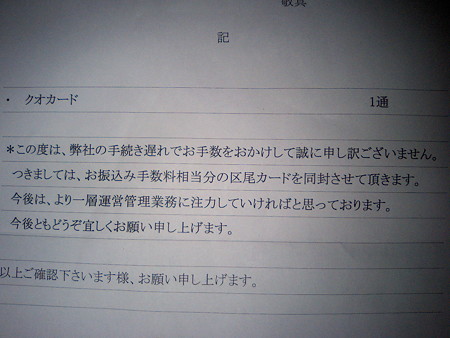 敬具
記
・ クオカード 1通
＊この度は、弊社の手続き遅れでお手数をおかけして誠に申し訳ございません。
つきましては、お振込み手数料相当分の区尾カードを同封させて頂きます。
今後は、より一層運営管理業務に注力していければと思っております。
今後ともどうぞ宜しくお願い申し上げます。
以上ご確認下さいます様、お願い申し上げます。